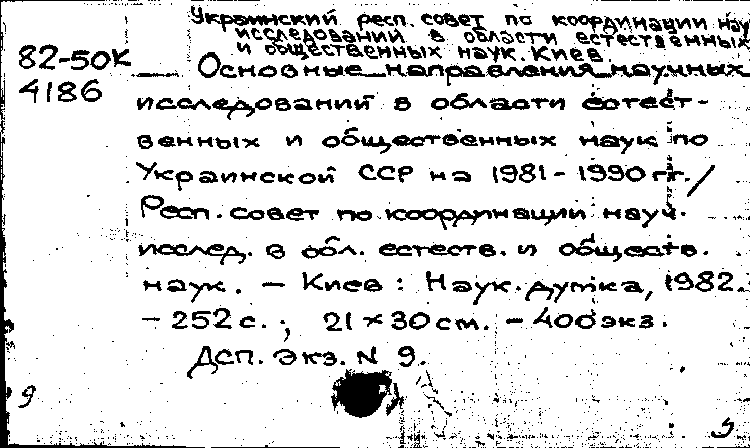 Украинский респ. совет по координации науч
исследований в области естественных
и общественных наук. Киев.
82-50К
4186
Основные направления научных
исследований в области естест-
венных и общественных наук по
Украинской ССР на 1981-1990 гг. /
Респ. совет по координации науч.
исслед. в обл. естеств. и обществ.
наук. - Киев : Наук. думка, 1982.
- 252 с. ; 21 × 30 см. - 400 экз.
ДСП. Экз. N 9.
9
9